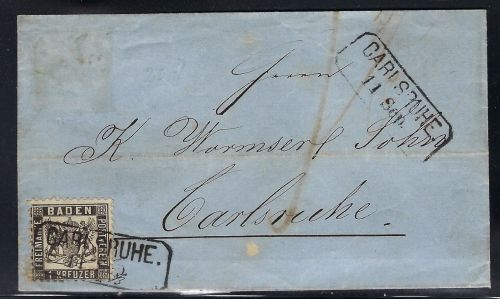 CARLSRUHE.
11 Sep.
Herrn
K. Wormser Sohn
Carlsruhe.
BADEN
FREIMARKE
POSTVEREIN
1 KREUZER
CARLSRUHE.
11